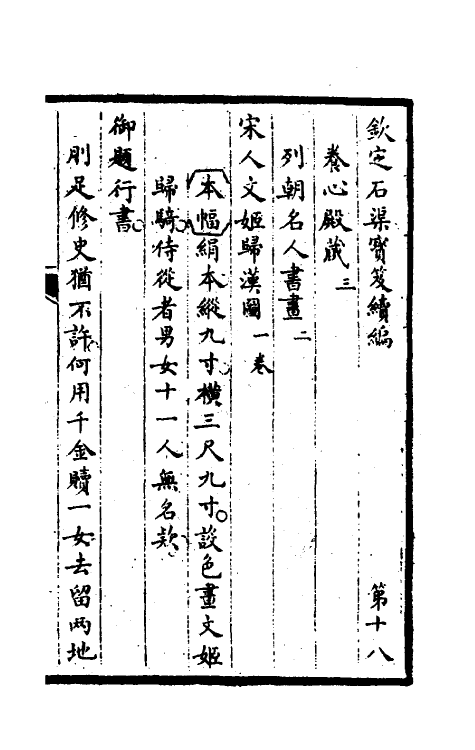 欽定石渠寶笈續編 第十八
養心殿藏三
列朝名人書畫二
宋人文姬歸漢圖一卷
本幅絹本縱九寸橫三尺九寸設色畫文姬
歸騎侍從者男女十一人無名款
御題行書
刖足修史猶不許何用千金贖一女去留兩地